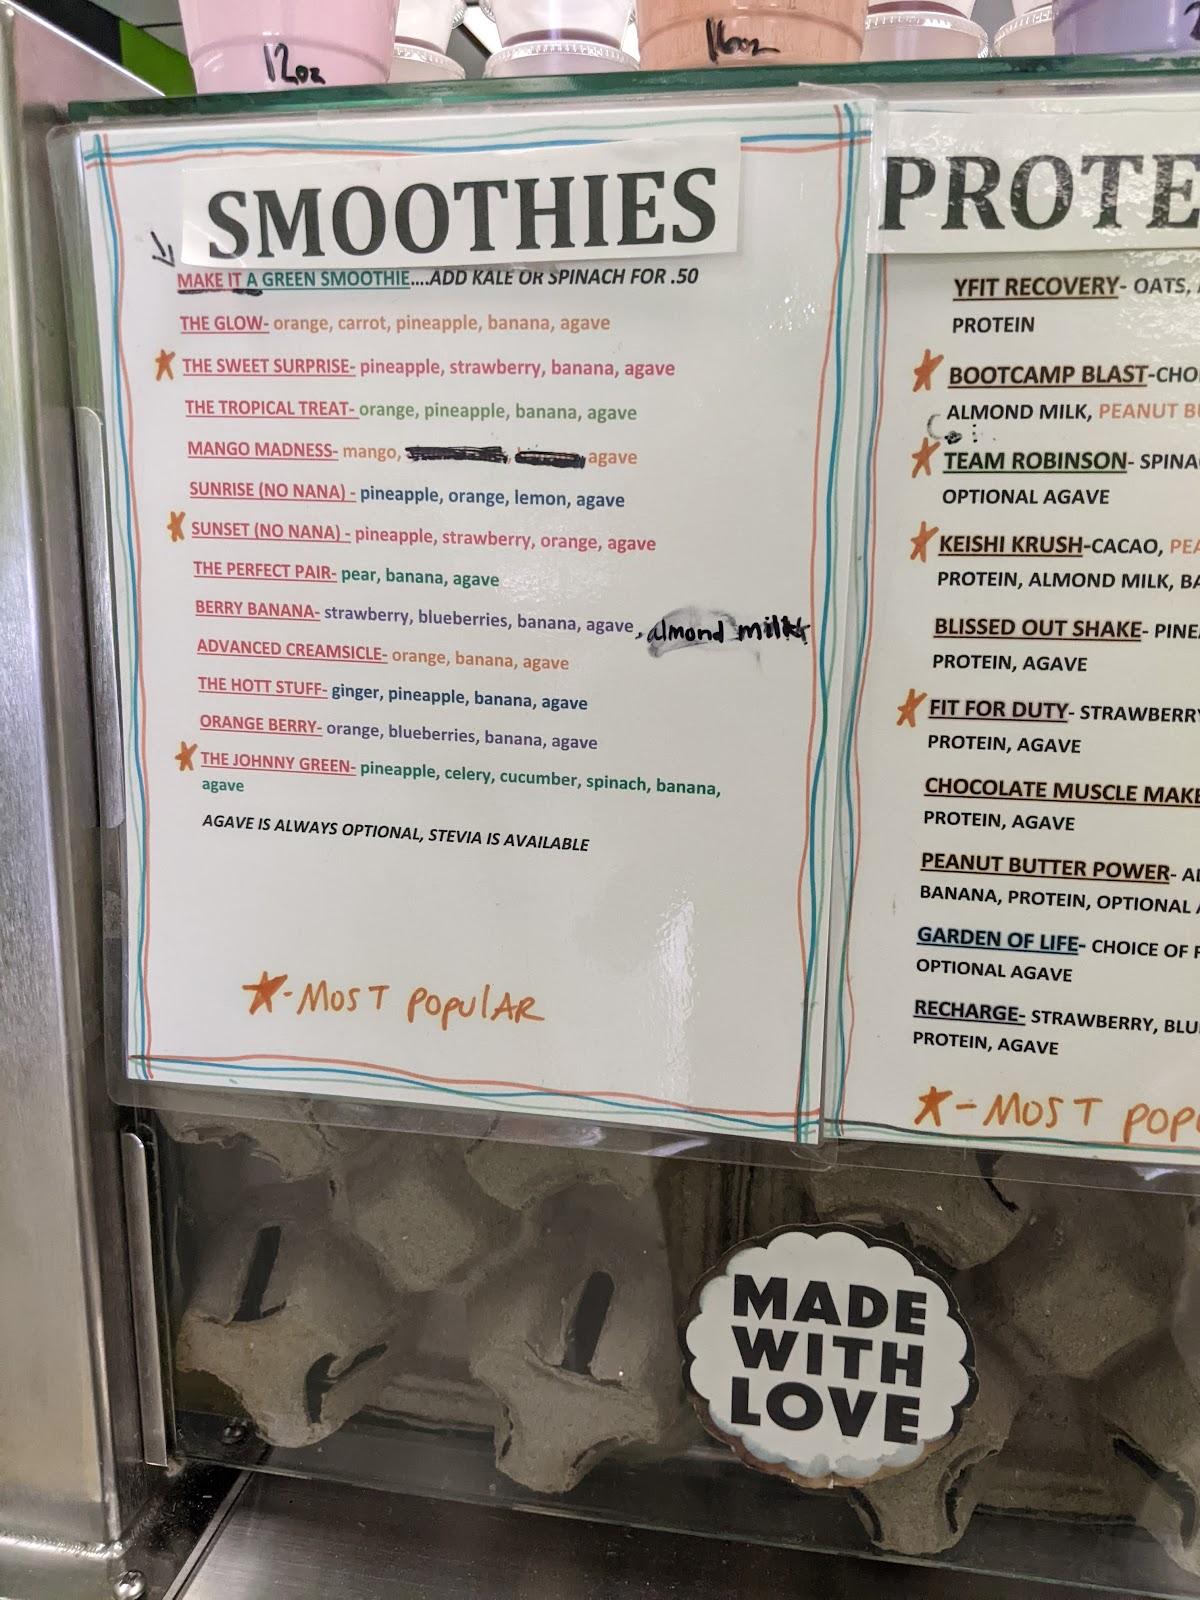 12oz
16oz
SMOOTHIES
MAKE IT A GREEN SMOOTHIE....ADD KALE OR SPINACH FOR .50
THE GLOW- orange, carrot, pineapple, banana, agave
THE SWEET SURPRISE- pineapple, strawberry, banana, agave
THE TROPICAL TREAT- orange, pineapple, banana, agave
MANGO MADNESS- mango, , agave
SUNRISE (NO NANA) - pineapple, orange, lemon, agave
SUNSET (NO NANA) - pineapple, strawberry, orange, agave
THE PERFECT PAIR- pear, banana, agave
BERRY BANANA- strawberry, blueberries, banana, agave, almond milk
ADVANCED CREAMSICLE- orange, banana, agave
THE HOTT STUFF- ginger, pineapple, banana, agave
ORANGE BERRY- orange, blueberries, banana, agave
THE JOHNNY GREEN- pineapple, celery, cucumber, spinach, banana,
agave
AGAVE IS ALWAYS OPTIONAL, STEVIA IS AVAILABLE
-MOST POPULAR
PROTE
YFIT RECOVERY- OATS,
PROTEIN
BOOTCAMP BLAST-CHO
ALMOND MILK, PEANUT BU
TEAM ROBINSON- SPINA
OPTIONAL AGAVE
KEISHI KRUSH-CACAO, PEA
PROTEIN, ALMOND MILK, BA
BLISSED OUT SHAKE- PINEA
PROTEIN, AGAVE
FIT FOR DUTY- STRAWBERRY
PROTEIN, AGAVE
CHOCOLATE MUSCLE MAKE
PROTEIN, AGAVE
PEANUT BUTTER POWER- AL
BANANA, PROTEIN, OPTIONAL A
GARDEN OF LIFE- CHOICE OF P
OPTIONAL AGAVE
RECHARGE- STRAWBERRY, BLU
PROTEIN, AGAVE
-MOST POPU
MADE
WITH
LOVE